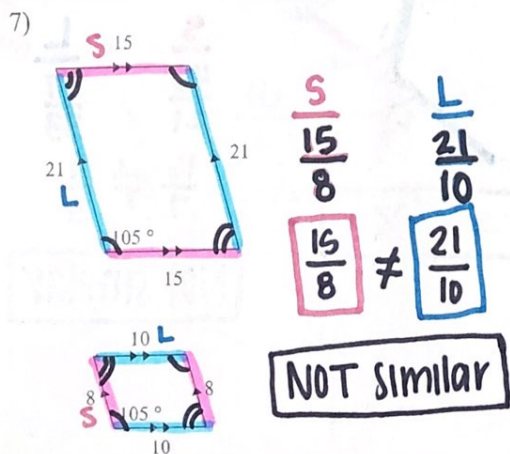 7)
S 15
21
L
21
105°
15
10 L
8
S
8
105°
10
S L
15/8 21/10
15/8 ≠ 21/10
NOT Similar